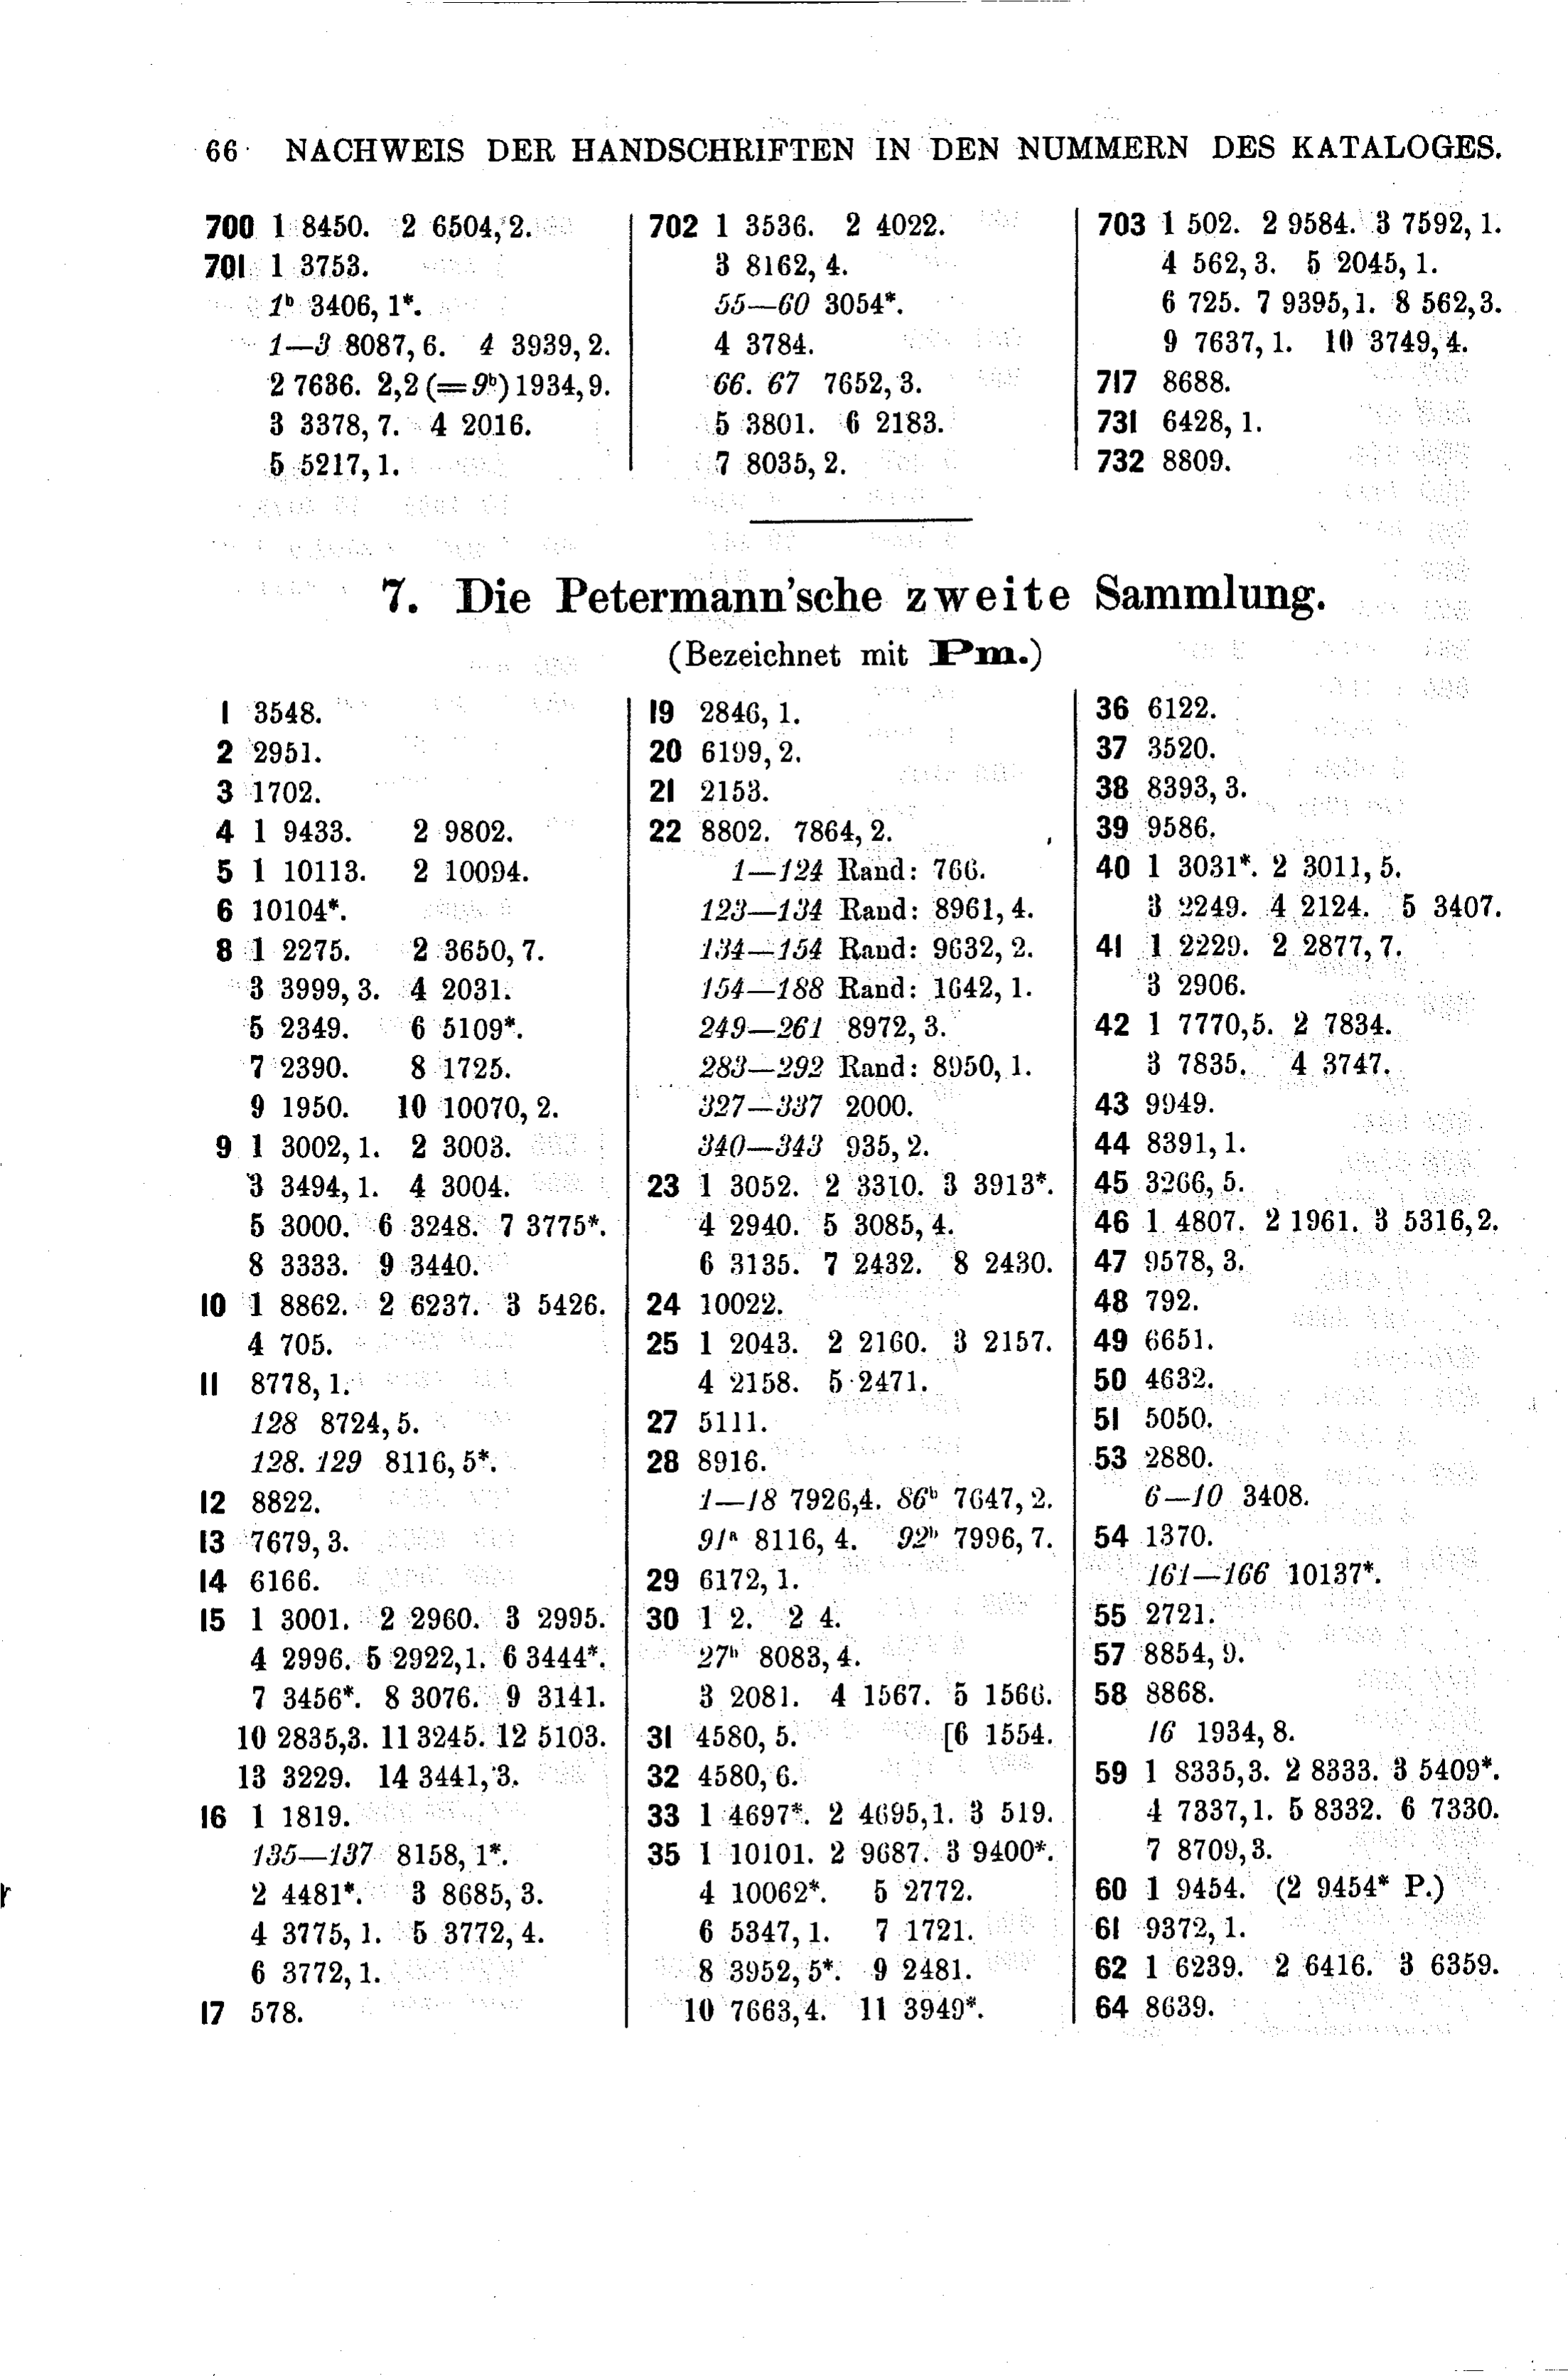 66 NACHWEIS DER HANDSCHRIFTEN IN DEN NUMMERN DES KATALOGES.
700 1 8450. 2 6504, 2.
701 1 3753.
1b 3406, 1*.
1—3 8087, 6. 4 3939, 2.
2 7636. 2,2 (=9b) 1934, 9.
3 3378, 7. 4 2016.
5 5217, 1.
702 1 3536. 2 4022.
3 8162, 4.
55—60 3054*.
4 3784.
66. 67 7652, 3.
5 3801. 6 2183.
7 8035, 2.
703 1 502. 2 9584. 3 7592, 1.
4 562, 3. 5 2045, 1.
6 725. 7 9395, 1. 8 562, 3.
9 7637, 1. 10 3749, 4.
717 8688.
731 6428, 1.
732 8809.
7. Die Petermann'sche zweite Sammlung.
(Bezeichnet mit Pm.)
1 3548.
2 2951.
3 1702.
4 1 9433. 2 9802.
5 1 10113. 2 10094.
6 10104*.
8 1 2275. 2 3650, 7.
3 3999, 3. 4 2031.
5 2349. 6 5109*.
7 2390. 8 1725.
9 1950. 10 10070, 2.
9 1 3002, 1. 2 3003.
3 3494, 1. 4 3004.
5 3000. 6 3248. 7 3775*.
8 3333. 9 3440.
10 1 8862. 2 6237. 3 5426.
4 705.
11 8778, 1.
128 8724, 5.
128. 129 8116, 5*.
12 8822.
13 7679, 3.
14 6166.
15 1 3001. 2 2960. 3 2995.
4 2996. 5 2922, 1. 6 3444*.
7 3456*. 8 3076. 9 3141.
10 2835, 3. 11 3245. 12 5103.
13 3229. 14 3441, 3.
16 1 1819.
135—137 8158, 1*.
2 4481*. 3 8685, 3.
4 3775, 1. 5 3772, 4.
6 3772, 1.
17 578.
19 2846, 1.
20 6199, 2.
21 2153.
22 8802. 7864, 2.
1—124 Rand: 766.
123—134 Rand: 8961, 4.
134—154 Rand: 9632, 2.
154—188 Rand: 1642, 1.
249—261 8972, 3.
283—292 Rand: 8950, 1.
327—337 2000.
340—343 935, 2.
23 1 3052. 2 3310. 3 3913*.
4 2940. 5 3085, 4.
6 3135. 7 2432. 8 2430.
24 10022.
25 1 2043. 2 2160. 3 2157.
4 2158. 5 2471.
27 5111.
28 8916.
1—18 7926, 4. 86b 7647, 2.
91a 8116, 4. 92b 7996, 7.
29 6172, 1.
30 1 2. 2 4.
27b 8083, 4.
3 2081. 4 1567. 5 1566.
31 4580, 5. [6 1554.
32 4580, 6.
33 1 4697*. 2 4695, 1. 3 519.
35 1 10101. 2 9687. 3 9400*.
4 10062*. 5 2772.
6 5347, 1. 7 1721.
8 3952, 5*. 9 2481.
10 7663, 4. 11 3949*.
36 6122.
37 3520.
38 8393, 3.
39 9586.
40 1 3031*. 2 3011, 5.
3 2249. 4 2124. 5 3407.
41 1 2229. 2 2877, 7.
3 2906.
42 1 7770, 5. 2 7834.
3 7835. 4 3747.
43 9949.
44 8391, 1.
45 3266, 5.
46 1 4807. 2 1961. 3 5316, 2.
47 9578, 3.
48 792.
49 6651.
50 4632.
51 5050.
53 2880.
6—10 3408.
54 1370.
161—166 10137*.
55 2721.
57 8854, 9.
58 8868.
16 1934, 8.
59 1 8335, 3. 2 8333. 3 5409*.
4 7337, 1. 5 8332. 6 7330.
7 8709, 3.
60 1 9454. (2 9454* P.)
61 9372, 1.
62 1 6239. 2 6416. 3 6359.
64 8639.